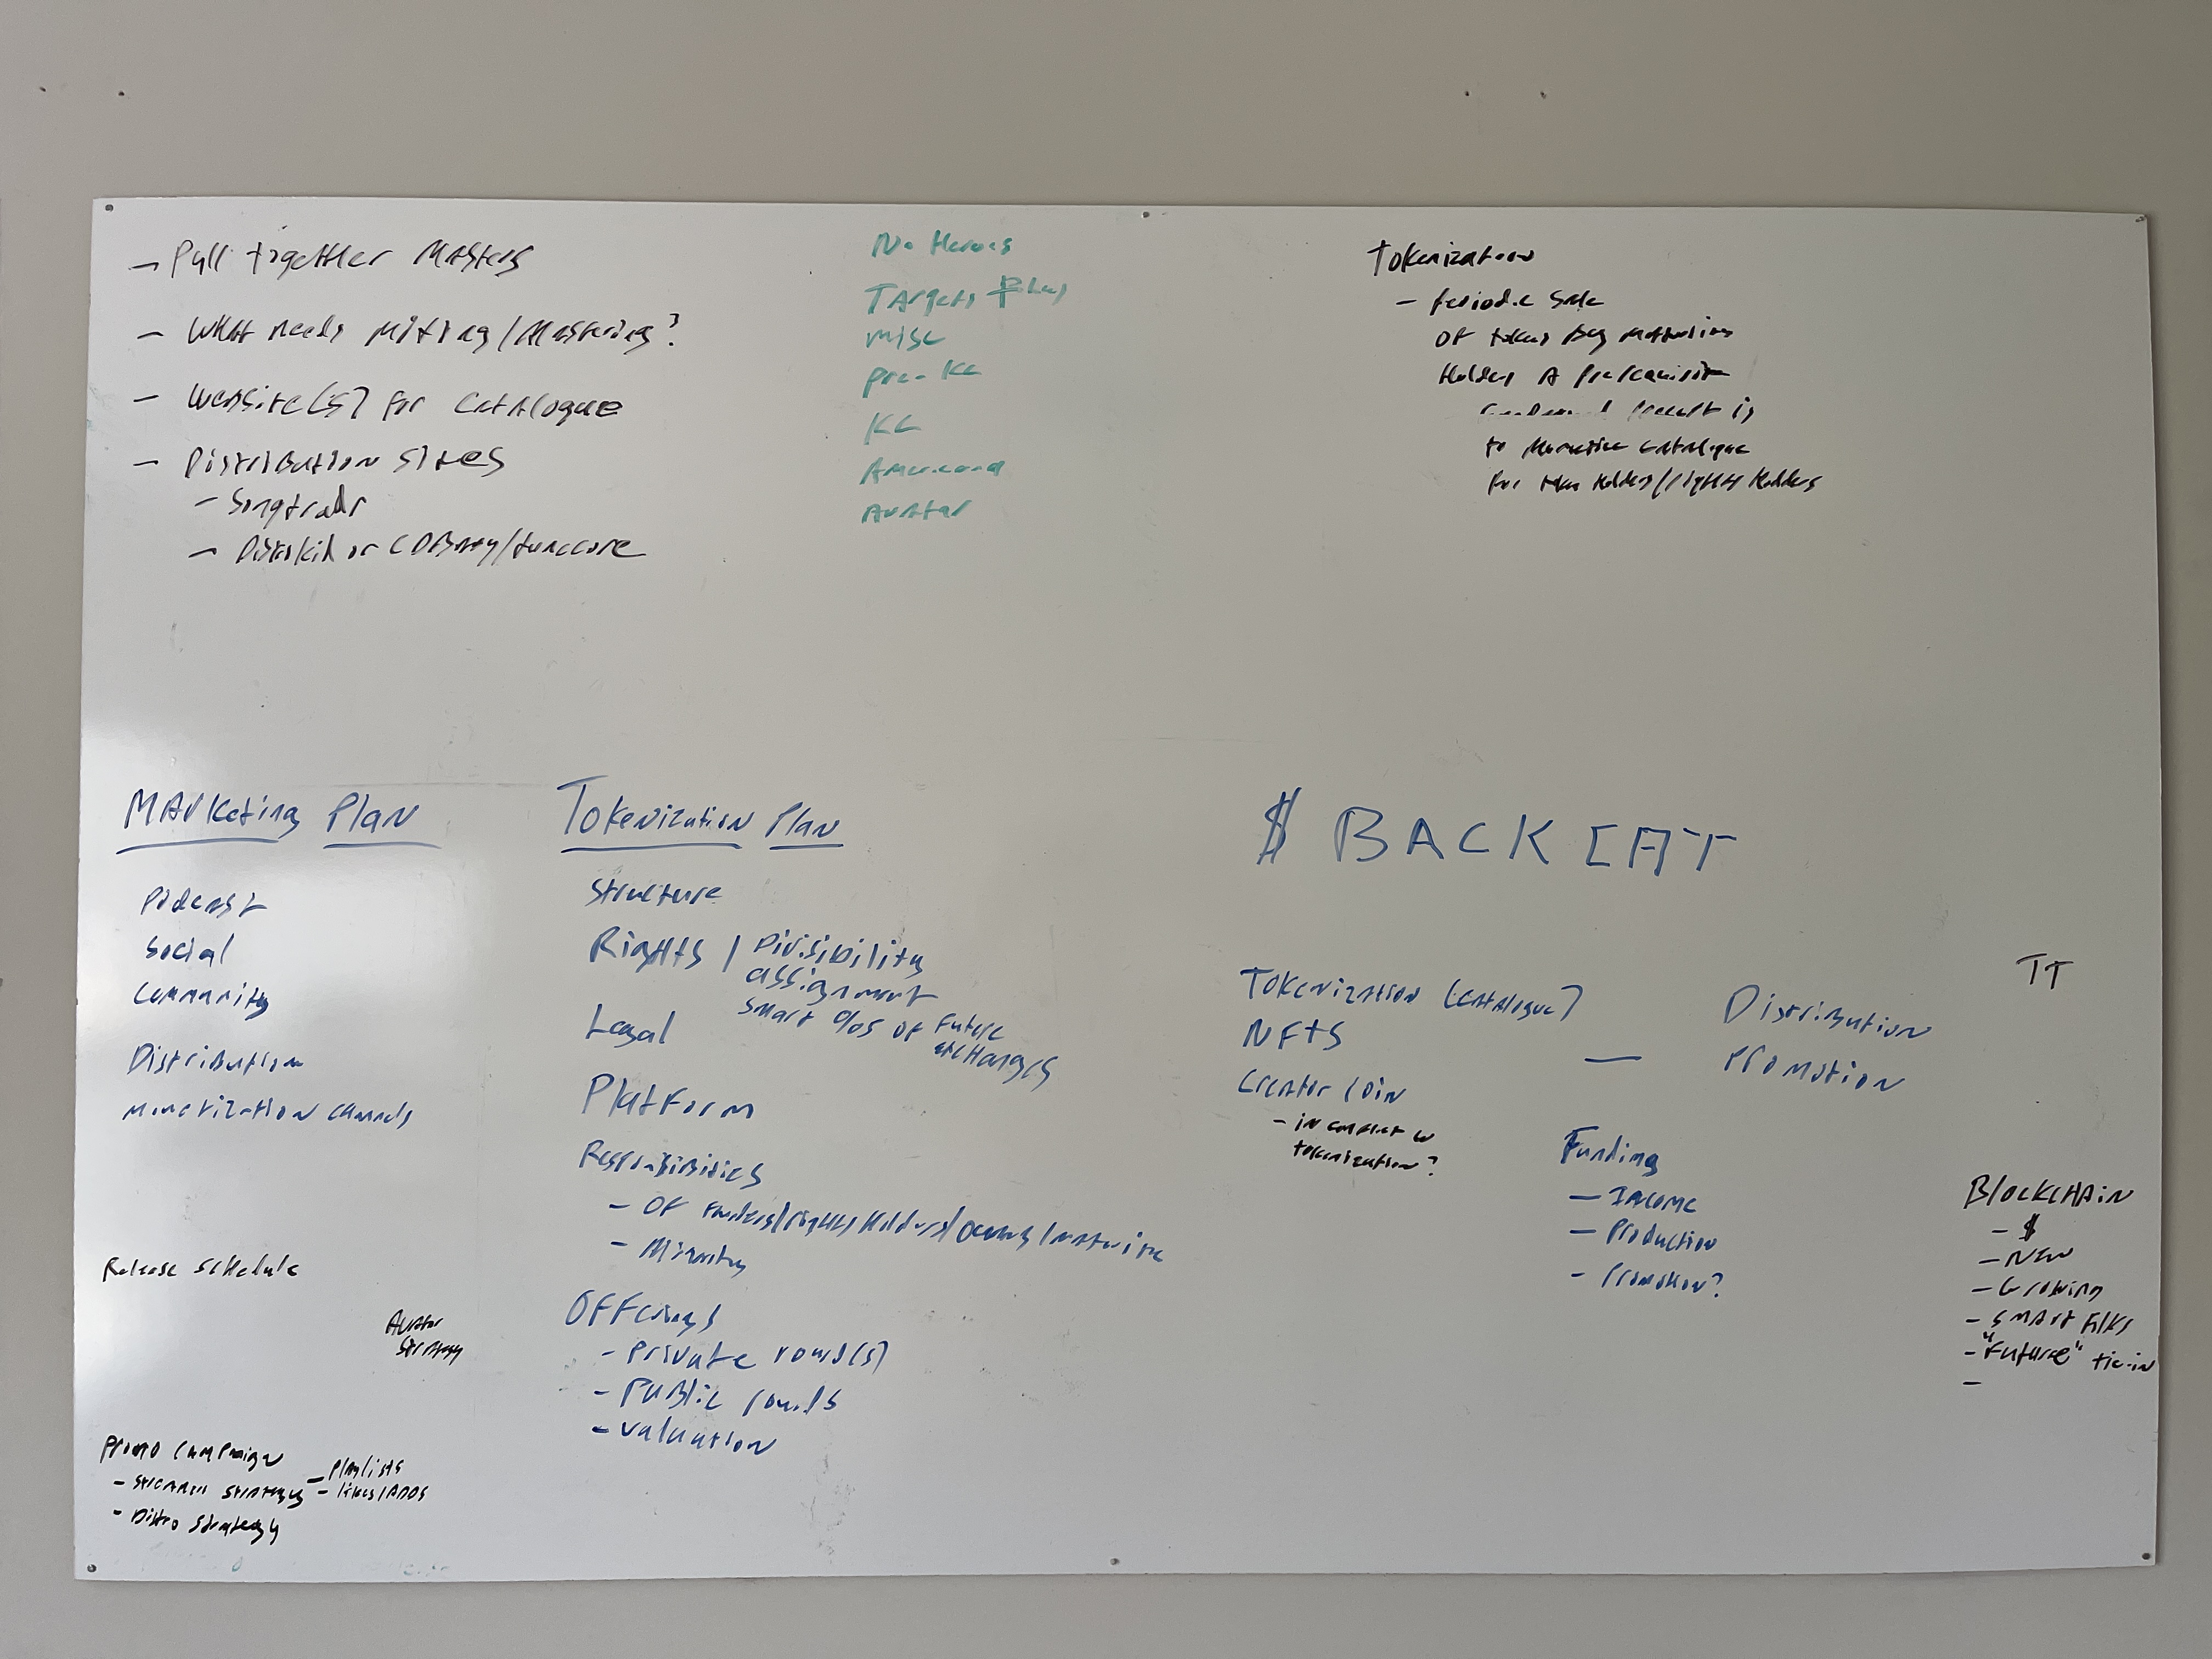 - Pull together Masters
- What needs mixing/Mastering?
- Website(s) for catalogue
- Distribution sites
- Songtradr
- Distrokid or CDBaby/tunecore
No Heroes
Targets
Misc
Pre-KC
KC
Americana
Avatar
Tokenization
- Periodic sale
of token
Holders A
is
to Monetize catalogue
for holders/rights holders
Marketing Plan
Podcast
Social
Community
Distribution
Monetization channels
Release schedule
Avatar
Strategy
Promo campaign
- Streaming strategy
- Playlists
- likes/Adds
- Distro strategy
Tokenization Plan
Structure
Rights / Divisibility
assignment
smart %s of future
exchanges
Legal
Platform
Responsibilities
- of /rights holders/
- Minority
Offerings
- Private round(s)
- Public rounds
- Valuation
$ BACKCAT
Tokenization (catalogue)
NFTs
Creator Coin
- in conflict w
tokenization?
—
Distribution
Promotion
Funding
- Income
- Production
- Promotion?
TT
Blockchain
- $
- New
- Growing
- Smart Folks
- "Future" tie-in
-